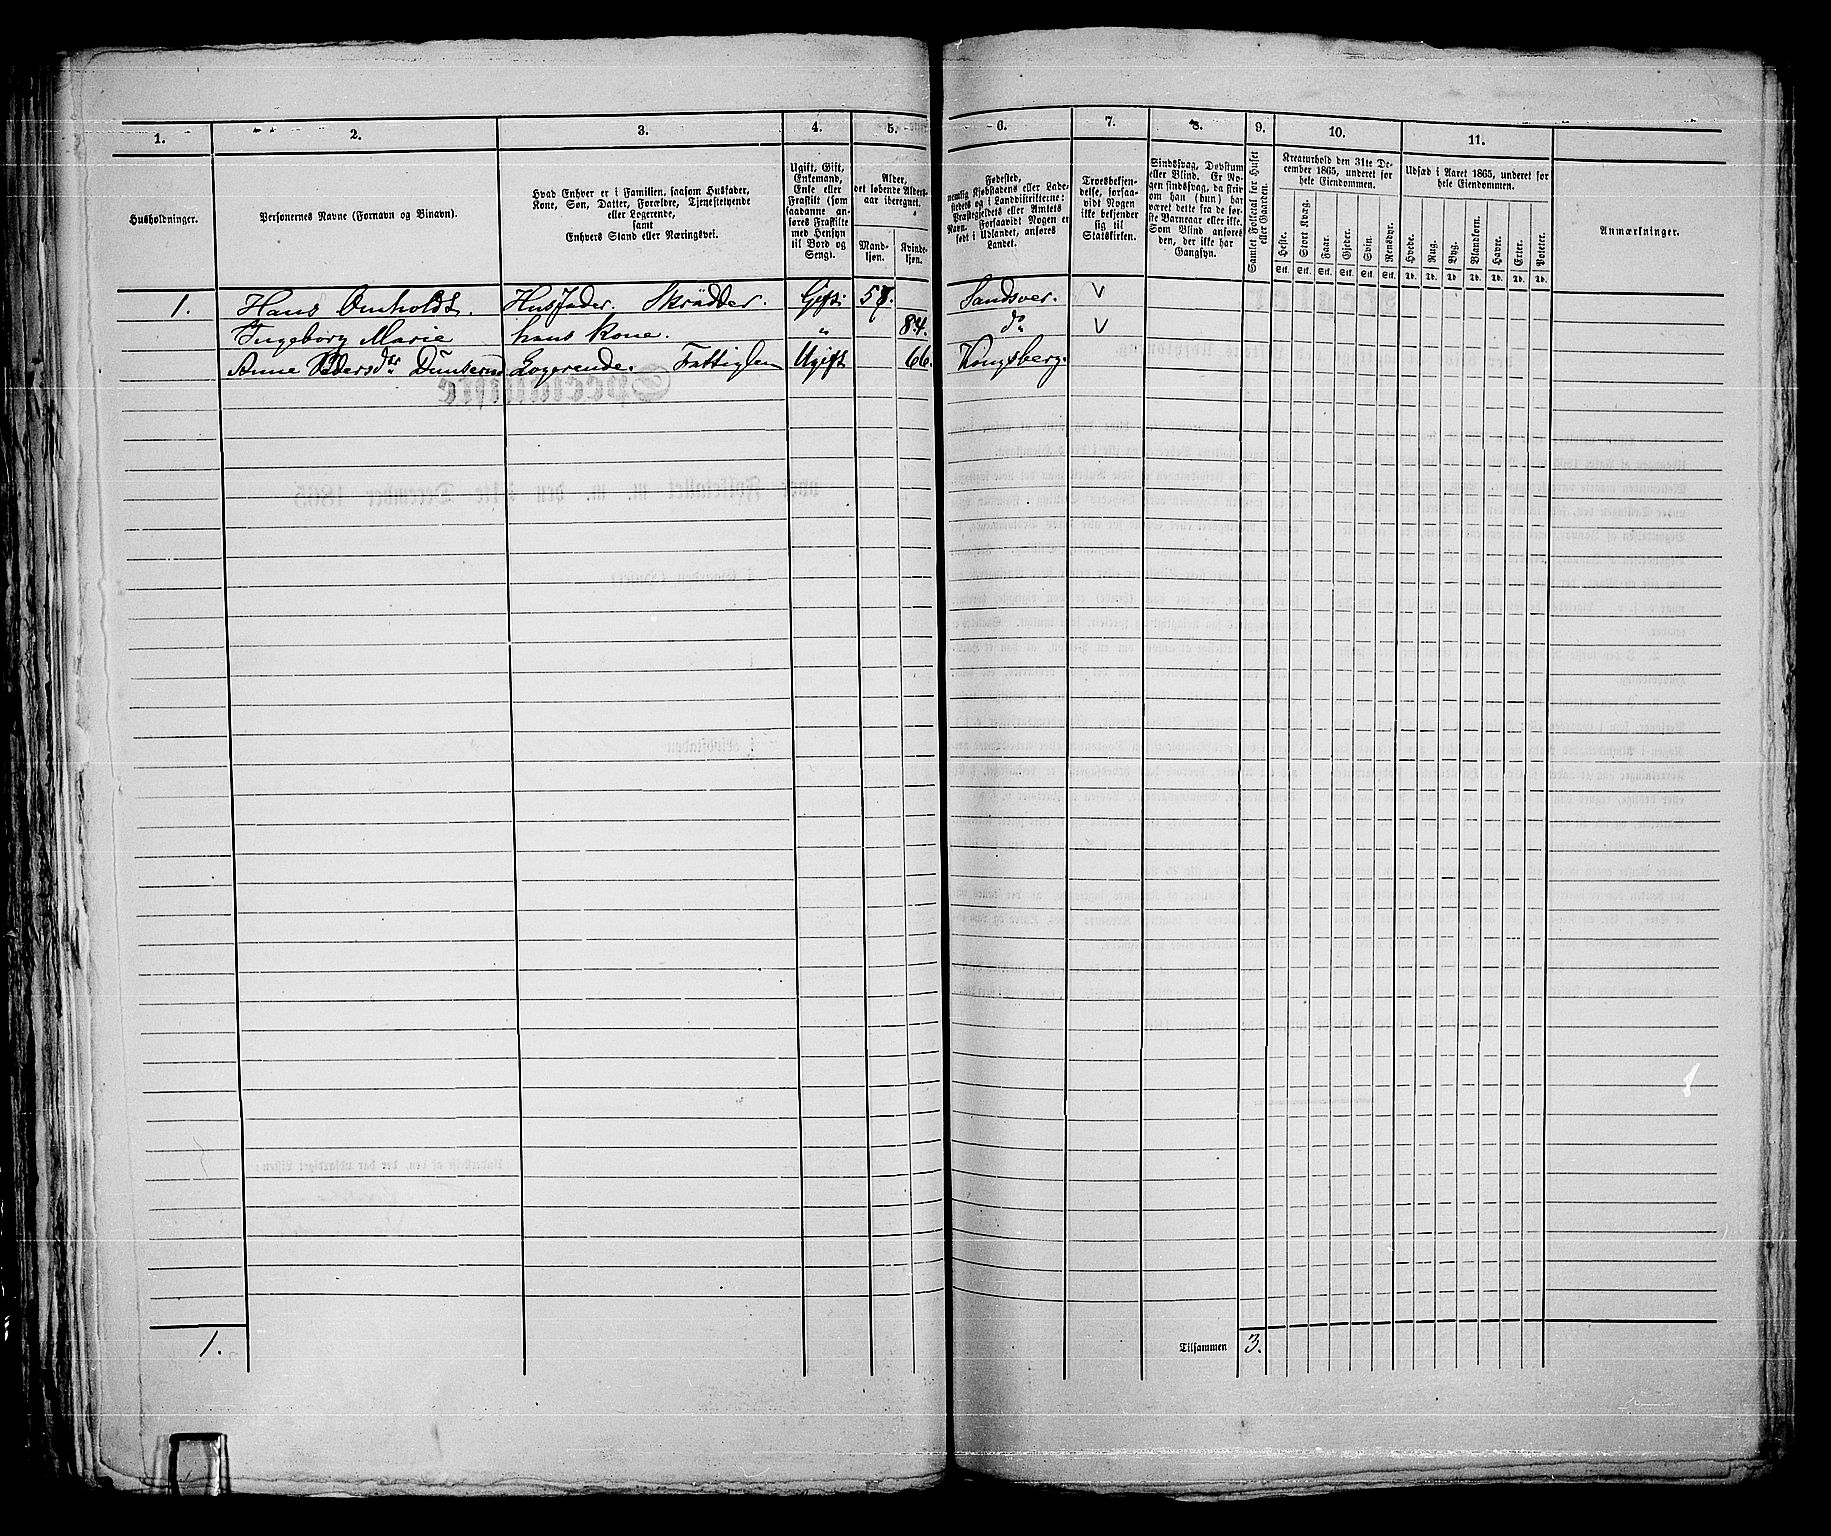 1. 2. 3. 4. 5. 6. 7. 8. 9. 10. 11.
Husholdninger.
Personernes Navne (Fornavn og Binavn).
Hvad Enhver er i Familien, saasom Husfader,
Kone, Søn, Datter, Forældre, Tjenestetyende
eller Logerende,
samt
Enhvers Stand eller Næringsvei.
Ugift, Gift,
Enkemand,
Enke eller
Fraskilt (som
saadanne an-
føres Fraskilte
med Hensyn
til Bord og
Seng).
Alder,
det løbende Alders-
aar iberegnet.
Mand-
kjøn.
Kvinde-
kjøn.
Fødested,
nemlig Kjøbstadens eller Lade-
stedets og i Landdistrikterne:
Præstegjeldets eller Amtets
Navn. Forsaavidt Nogen er
født i Udlandet, anføres
Landet.
Troesbekjen-
delse, forsaa-
vidt Nogen
ikke bekjender
sig til
Statskirken.
Sindssvag, Døvstum
eller Blind. Er No-
gen sindssvag, da skri-
ves om han (hun) har
været dette fra de før-
ste Barneaar eller ikke.
Som Blind anføres
den, der ikke har
Gangsyn.
Samlet Folketal for Huset
eller Gaarden.
Kreaturhold den 31te De-
cember 1865, underet for
hele Eiendommen.
Heste. Stort Kvæg. Faar. Gjeder. Svin. Rensdyr.
Stk. Stk. Stk. Stk. Stk. Stk.
Udsæd i Aaret 1865, underet for
hele Eiendommen.
Hvede. Rug. Byg. Blandkorn. Havre. Erter. Poteter.
Td. Td. Td. Td. Td. Td. Td.
Anmærkninger.
1. Hans Omholdt. Husfader. Skrædder. Gift. Sandsver. V
Ingeborg Marie hans kone. " 84. do V
Anne Pedersdr Logerende. Ugift 66. Kongsberg.
1. Tilsammen 3.